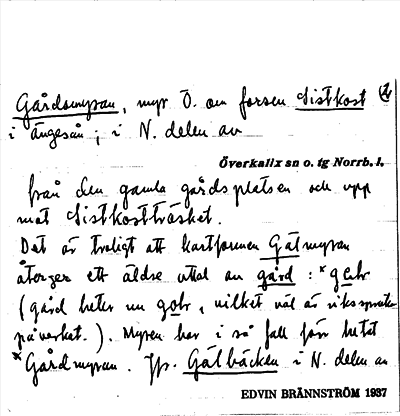 Gårdsmyran, myr Ö. om forsen Sistkost
i Ängesån; i N. delen av
Överkalix sn o. tg Norrb. l.
från den gamla gårdsplatsen och upp
mot Sistkostträsket.
Det är troligt att kartformen Gålmyran
återger ett äldre uttal av gård : *
(gård heter nu , vilket väl är riksspråks-
påverkat.). Myren har i så fall förr hetat
*Gårdmyran. Jfr. Gålbäcken i N. delen av
EDVIN BRÄNNSTRÖM 1937